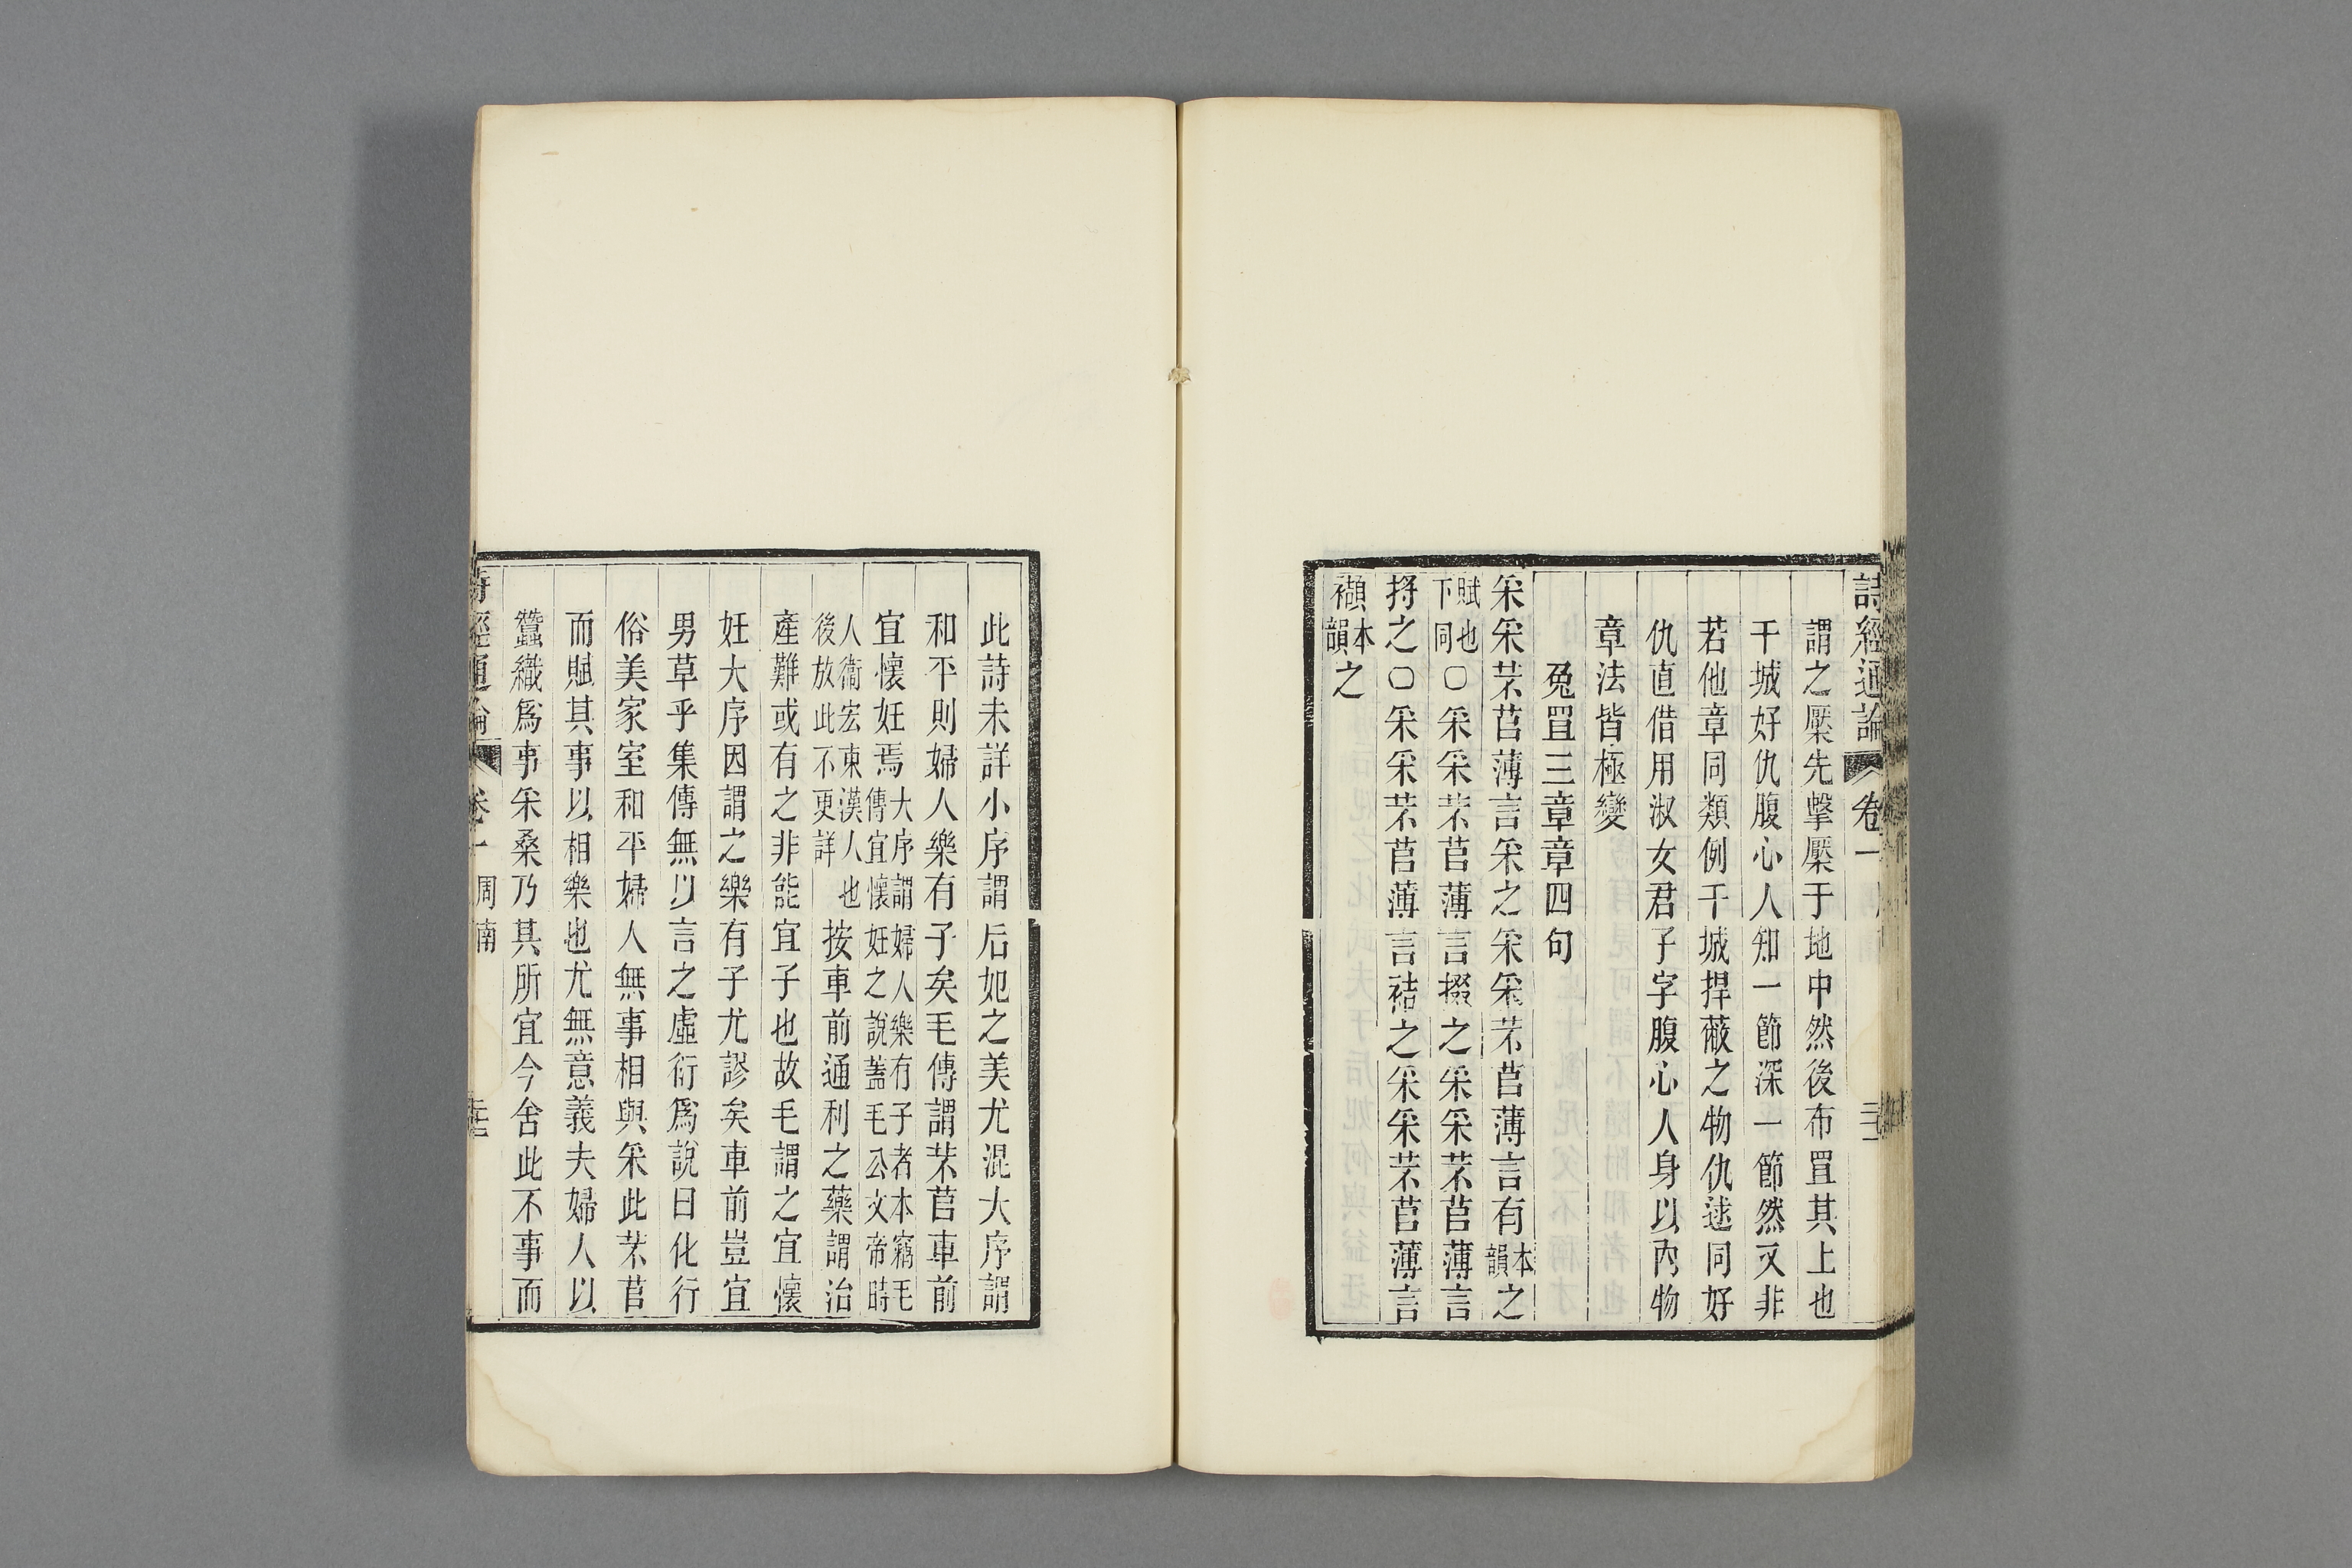 詩經通論 卷一
謂之壓先擊壓于地中然後布罝其上也
干城好仇腹心人知一節深一節然又非
若他章同類例干城捍蔽之物仇逑同好
仇直借用淑女君子字腹心人身以內物
章法皆極變
兔罝三章章四句
采采芣苢薄言采之采采芣苢薄言有本韻之
賦也下同○采采芣苢薄言掇之采采芣苢薄言
捋之○采采芣苢薄言袺之采采芣苢薄言
襭本韻之
此詩未詳小序謂后妃之美尤混大序謂
和平則婦人樂有子矣毛傳謂芣苢車前
宜懷妊焉大序謂婦人樂有子者本竊毛傳宜懷妊之說蓋毛公文帝時
人衞宏東漢人也後放此不更詳按車前通利之藥謂治
產難或有之非能宜子也故毛謂之宜懷
妊大序因謂之樂有子尤謬矣車前豈宜
男草乎集傳無以言之虛衍爲說曰化行
俗美家室和平婦人無事相與采此芣苢
而賦其事以相樂也尤無意義夫婦人以
蠶織爲事采桑乃其所宜今舍此不事而
詩經通論 卷一 周南